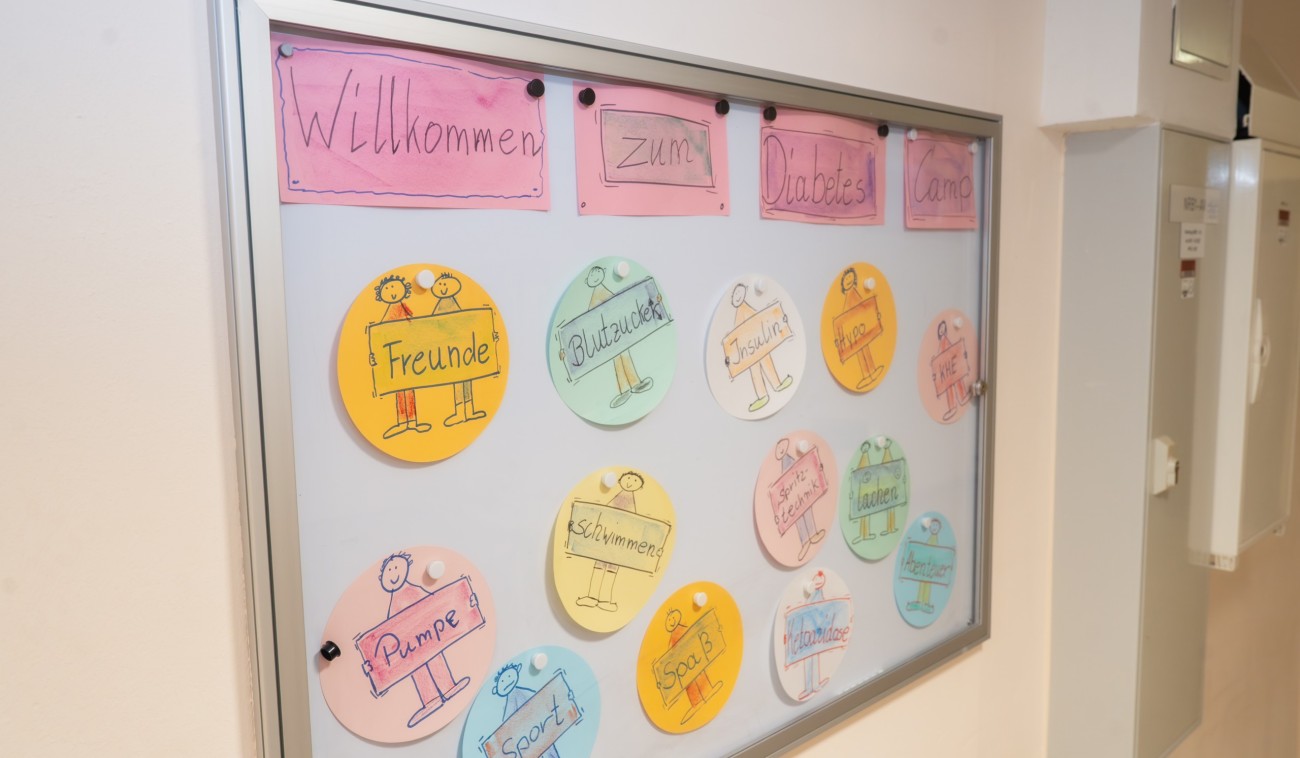 Willkommen zum Diabetes Camp
Freunde
Blutzucker
Insulin
Hypo
KHE
Spritz-
technik
Lachen
schwimmen
Abenteuer
Pumpe
Spaß
Ketoazidose
Sport